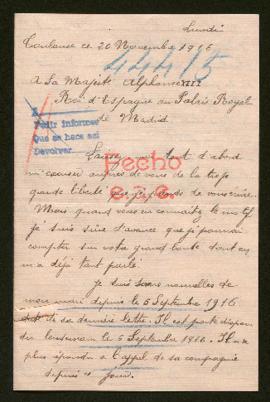 Lundi
Toulouse ce 20 Novembre 1916
44415
A Sa Majesté Alphonse XIII
Roi d'Espagne au Palais Royal
de Madrid
Pedir informes
Que se hace así
Devolver
Sire, Tout d'abord
Hecho
m'excuser auprès de vous de la trop
grande liberté que je prends de vous écrire.
Mais quand vous en connaîtrez le motif
je suis sûre d'avance que je pourrai
compter sur votre grande bonté dont on
m'a déjà tant parlé.
Je suis sans nouvelles de
mon mari depuis le 5 Septembre 1916
date de sa dernière lettre. Il est porté disparu
du lendemain le 6 Septembre 1916. Il n'a
plus répondu à l'appel de sa compagnie
depuis ce jour.